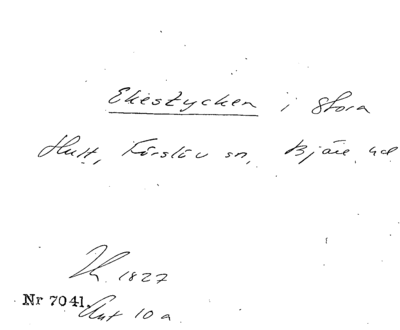 Ekestycken i Stora
Hult, Förslöv sn, Bjäre hd
1827
Nr 7041. Akt 10 a